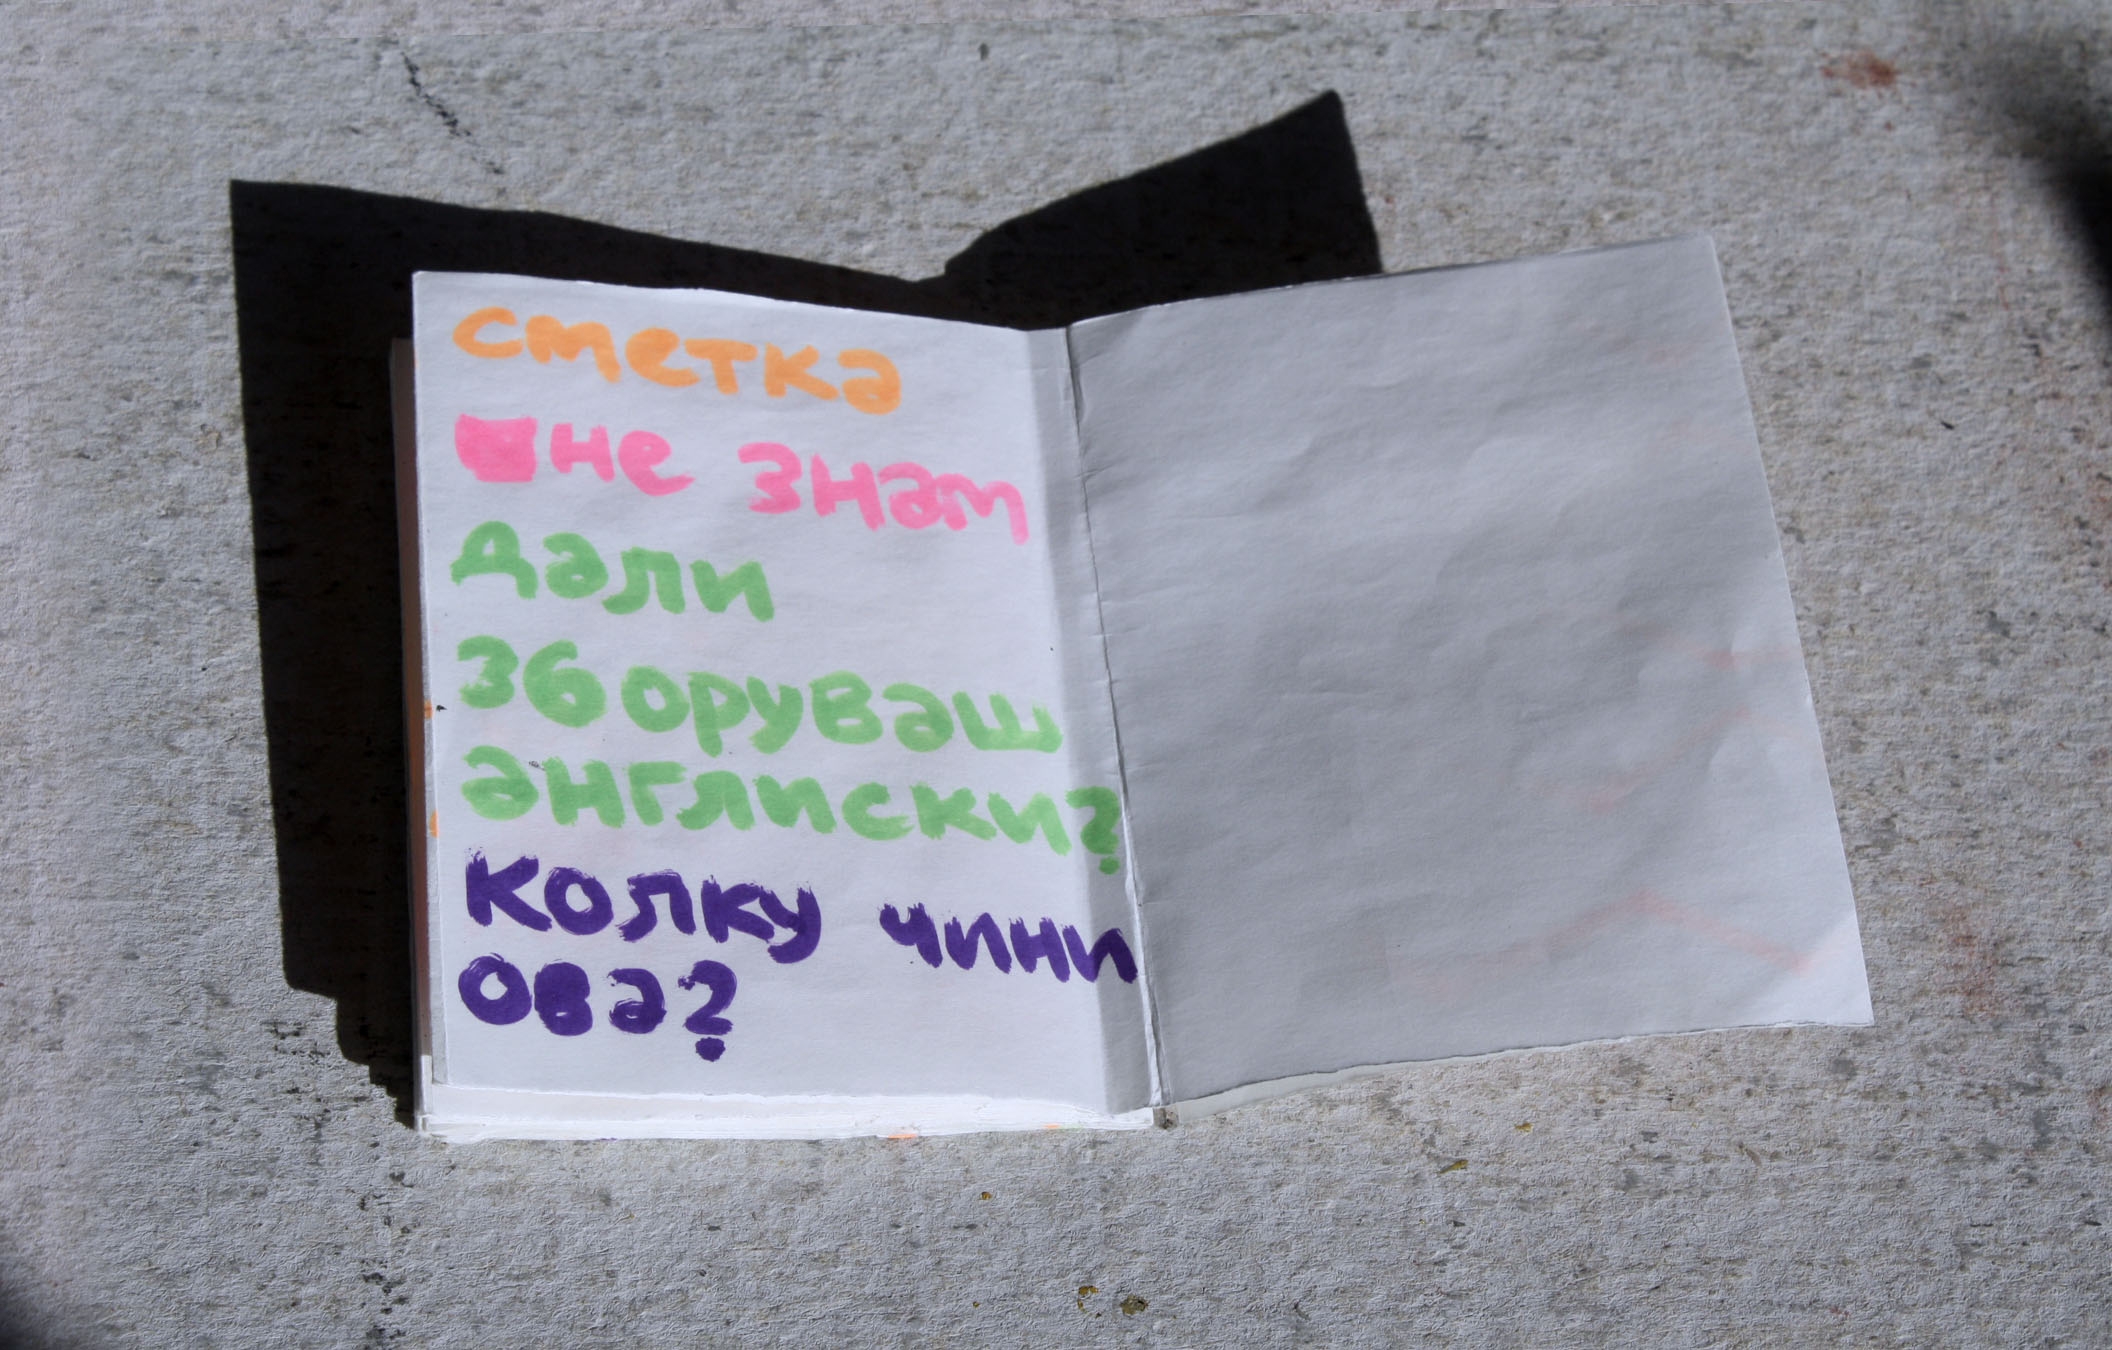 сметка
не знам
дали
зборуваш
англиски?
колку чини
ова?